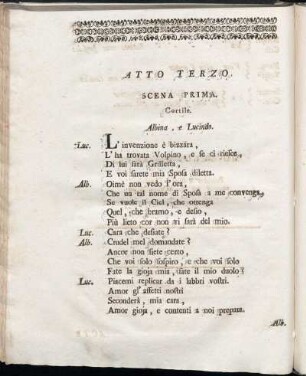 ATTO TERZO.
SCENA PRIMA.
Cortile.
Albina, e Lucindo.
Luc. L'invenzione è bizzara,
L'ha trovata Volpino, e se ci riesce,
Di lui sarà Grilletta,
E voi sarete mia Sposa diletta.
Alb. Oimè non vedo l'ora,
Che un tal nome di Sposa a me convenga,
Se vuole il Ciel, che ottenga
Quel, che bramo, e desio,
Più lieto cor non vi sarà del mio.
Luc. Cara che desiate?
Alb. Crudel mel domandate?
Ancor non siete certo,
Che voi solo sospiro, e che voi solo
Fate la gioja mia, fate il mio duolo?
Luc. Piacemi replicar da i labbri vostri.
Amor gl' affetti nostri
Seconderà, mia cara,
Amor gioja, e contenti a noi prepara.
Alb.